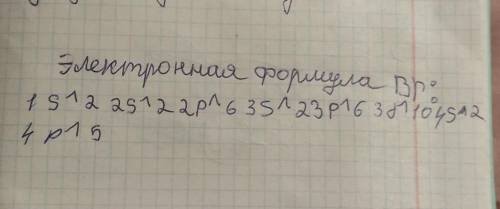 Электронная формула Br:
1 S^2 2S^2 2p^6 3S^2 3p^6 3d^10 4S^2
4 p^5